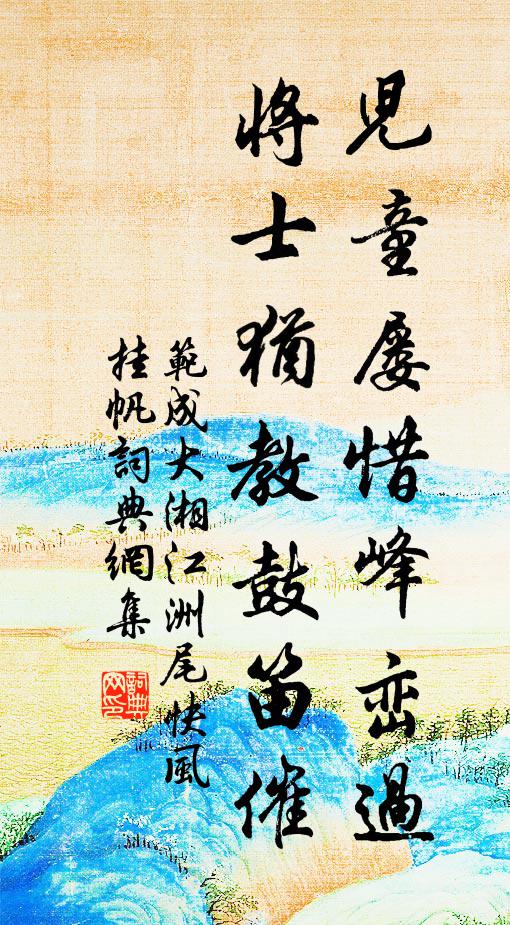 兒童屢惜峰巒過
將士猶教鼓笛催
範成大湘江洲尾快風
挂帆詞典網集
詞典
网印